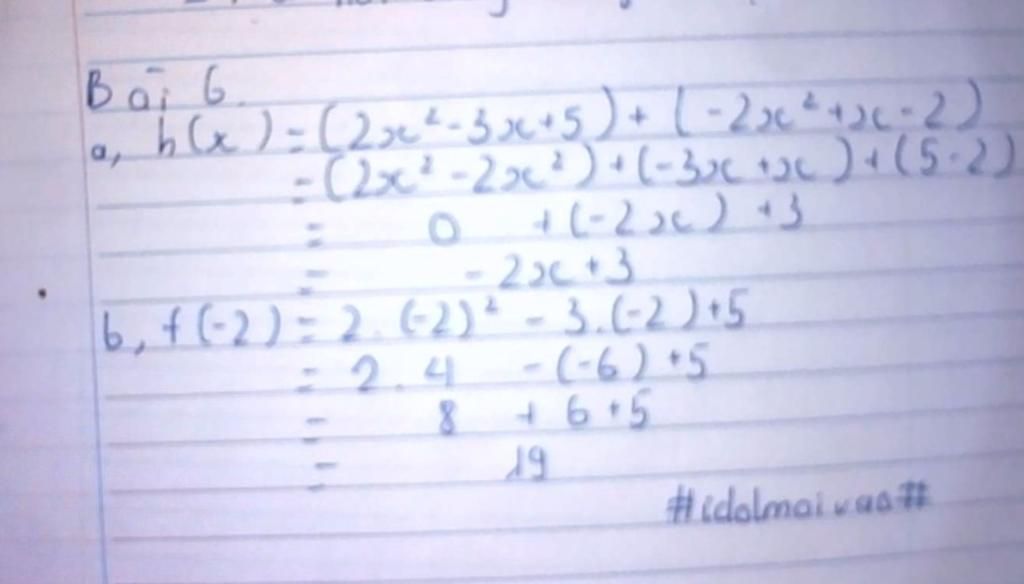 Bài 6.
a, h(x) = (2x² - 3x + 5) + (-2x² + x - 2)
= (2x² - 2x²) + (-3x + x) + (5 - 2)
= 0 + (-2x) + 3
= -2x + 3
b, f(-2) = 2. (-2)² - 3.(-2) + 5
= 2. 4 - (-6) + 5
= 8 + 6 + 5
= 19
#idolmaivao#